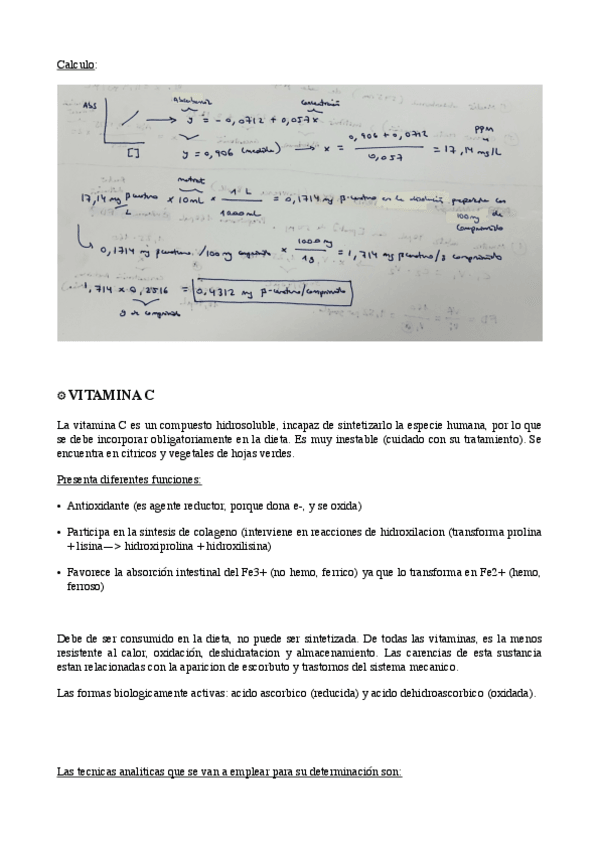 Calculo:
Abs
[ ]
Absorbancia
Concentración
y = - 0,0712 + 0,057x
y = 0,906 (medida) → x = 0,906 + 0,0712 / 0,057 = 17,14 mg/L
ppm
matraz
17,14 mg β caroteno / L x 10 mL x 1 L / 1000 mL = 0,1714 mg β-caroteno en la disolución preparada con
100 mg de
comprimido
0,1714 mg β caroteno / 100 mg comprimido x 1000 mg / 1 g = 1,714 mg β caroteno/g comprimido
1,714 x 0,2516 = 0,4312 mg β-caroteno/comprimido
g de comprimido
VITAMINA C
La vitamina C es un compuesto hidrosoluble, incapaz de sintetizarlo la especie humana, por lo que
se debe incorporar obligatoriamente en la dieta. Es muy inestable (cuidado con su tratamiento). Se
encuentra en citricos y vegetales de hojas verdes.
Presenta diferentes funciones:
• Antioxidante (es agente reductor, porque dona e-, y se oxida)
• Participa en la sintesis de colageno (interviene en reacciones de hidroxilacion (transforma prolina
+ lisina—> hidroxiprolina + hidroxilisina)
• Favorece la absorción intestinal del Fe3+ (no hemo, ferrico) ya que lo transforma en Fe2+ (hemo,
ferroso)
Debe de ser consumido en la dieta, no puede ser sintetizada. De todas las vitaminas, es la menos
resistente al calor, oxidación, deshidratacion y almacenamiento. Las carencias de esta sustancia
estan relacionadas con la aparicion de escorbuto y trastornos del sistema mecanico.
Las formas biologicamente activas: acido ascorbico (reducida) y acido dehidroascorbico (oxidada).
Las tecnicas analiticas que se van a emplear para su determinación son: